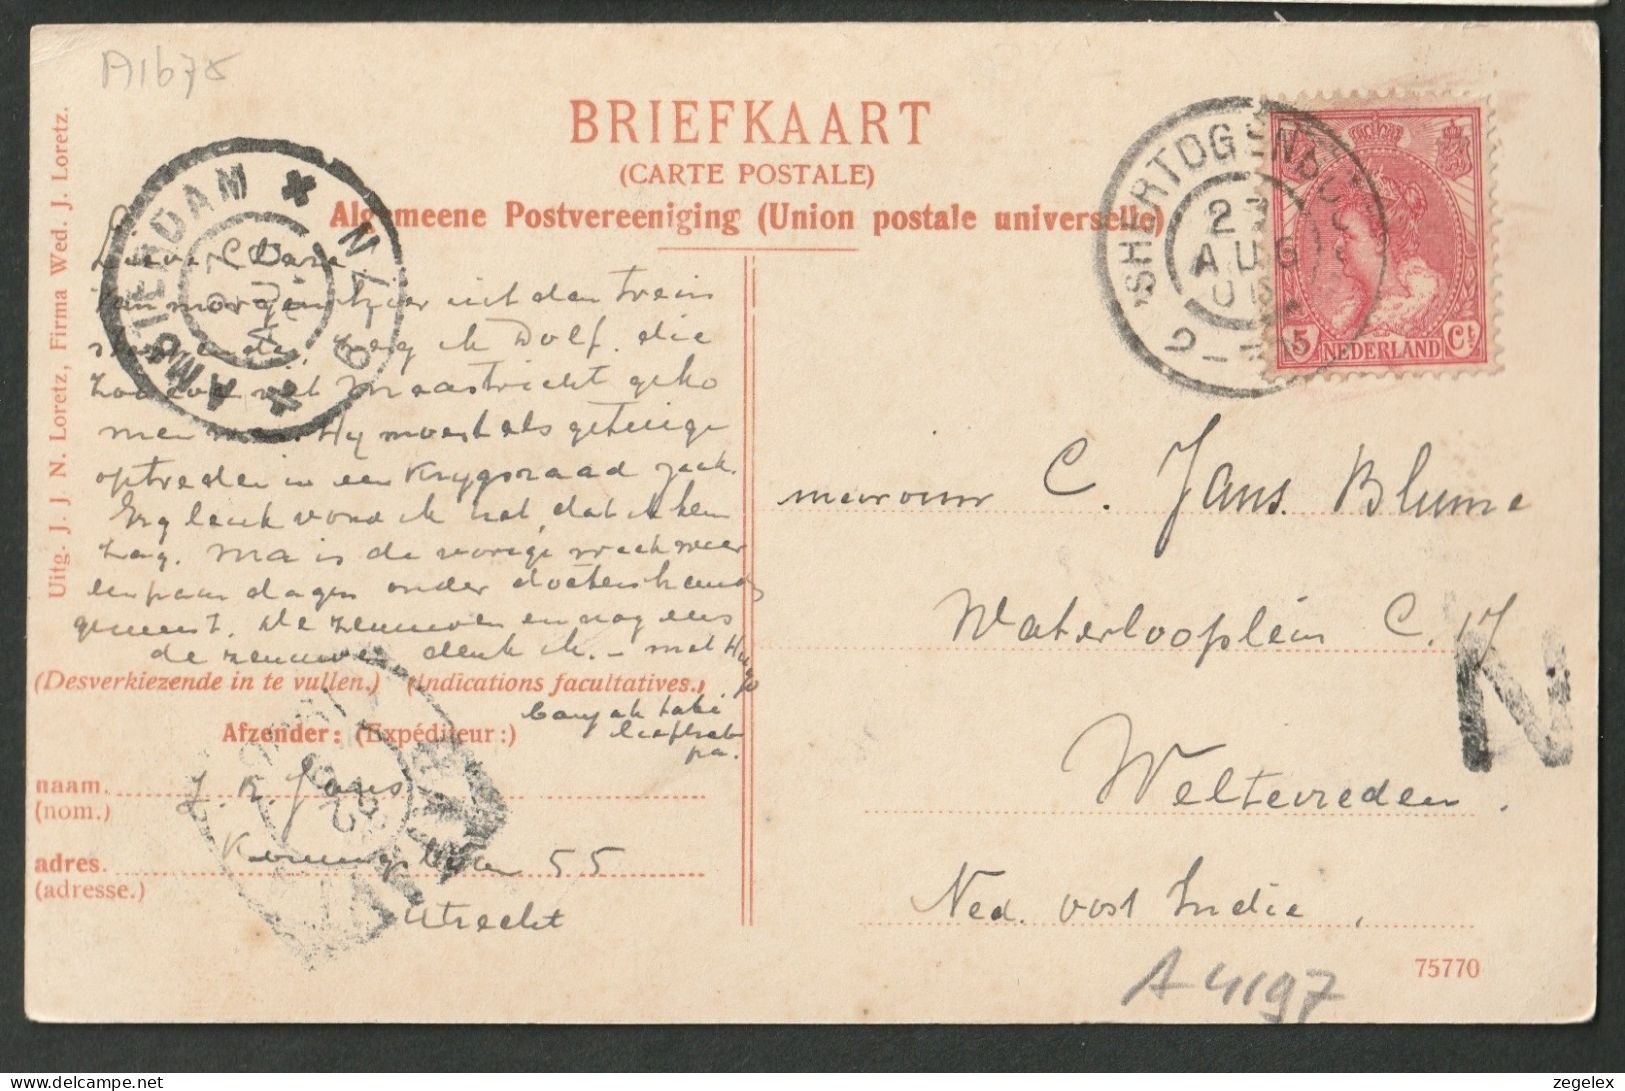 A1678
BRIEFKAART
(CARTE POSTALE)
Algemeene Postvereeniging (Union postale universelle)
Uitg. J. J N. Loretz, Firma Wed. J. Loretz.
AMSTERDAM
'SHERTOGENBO
2
AUG
5 NEDERLAND Ct
Lieve C
Van morgen hier uit den trein
zag ik Dolf, die
uit Maastricht geko
men was. Hy moest als getuige
optreden in een Krygsraad zaak.
Erg leuk vond ik het, dat ik hem
zag. Ma is de vorige week weer
een paar dagen onder doctershanden
geweest. De zenuwen en nog eens
de zenuwen, denk ik. – met Hugo
(Desverkiezende in te vullen.) (Indications facultatives.)
banyak tabé
liefheb
pa.
Afzender: (Expéditeur:)
naam. J. R. Jans
(nom.)
adres. 55
(adresse.)
Utrecht
mevrouw C. Jans. Blume
Waterlooplein C. 17
N
Weltevreden.
Ned. Oost Indie,
75770
A 4197
zegelex